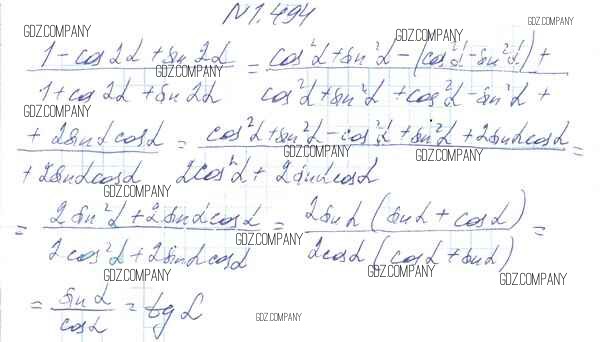 N 1.494
GDZ.COMPANY GDZ.COMPANY GDZ.COMPANY
(1 - cos 2α + sin 2α)/(1 + cos 2α + sin 2α) = (cos²α + sin²α - (cos²α - sin²α) +)/(cos²α + sin²α + cos²α - sin²α +)
GDZ.COMPANY GDZ.COMPANY
GDZ.COMPANY GDZ.COMPANY
(+ 2sinα cosα)/(+ 2sinα cosα) = (cos²α + sin²α - cos²α + sin²α + 2sinα cosα)/(2cos²α + 2sinα cosα) =
GDZ.COMPANY GDZ.COMPANY
GDZ.COMPANY GDZ.COMPANY
= (2sin²α + 2sinα cosα)/(2cos²α + 2sinα cosα) = (2sinα (sinα + cosα))/(2cosα (cosα + sinα)) =
GDZ.COMPANY
GDZ.COMPANY GDZ.COMPANY GDZ.COMPANY
= sinα/cosα = tgα
GDZ.COMPANY